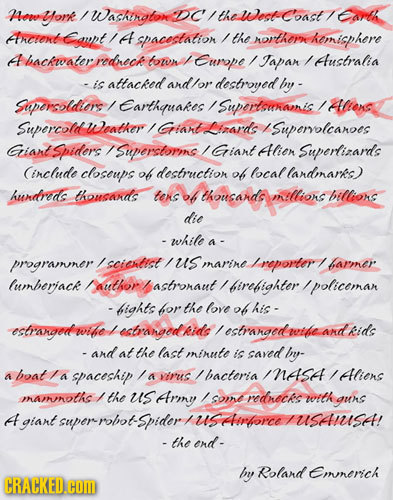 New York / Washington DC / the West-Coast / Earth
Ancient Egypt / A spacestation / the northern hemisphere
A backwater redneck town / Europe / Japan / Australia
- is attacked and/or destroyed by -
Supersoldiers / Earthquakes / Supertsunamis / Aliens
Supercold Weather / Giant Lizards / Supervolcanoes
Giant Spiders / Superstorms / Giant Alien Superlizards
(include closeups of destruction of local landmarks)
hundreds thousands tens of thousands millions billions
die
- while a -
programmer / scientist / US marine / reporter / farmer
lumberjack / author / astronaut / firefighter / policeman
- fights for the love of his -
estranged wife / estranged kids / estranged wife and kids
- and at the last minute is saved by -
a boat / a spaceship / a virus / bacteria / NASA / Aliens
mammoths / the US Army / some rednecks with guns
A giant super-robot-Spider / US Airforce / USA!USA!
- the end -
by Roland Emmerich
CRACKED.COM